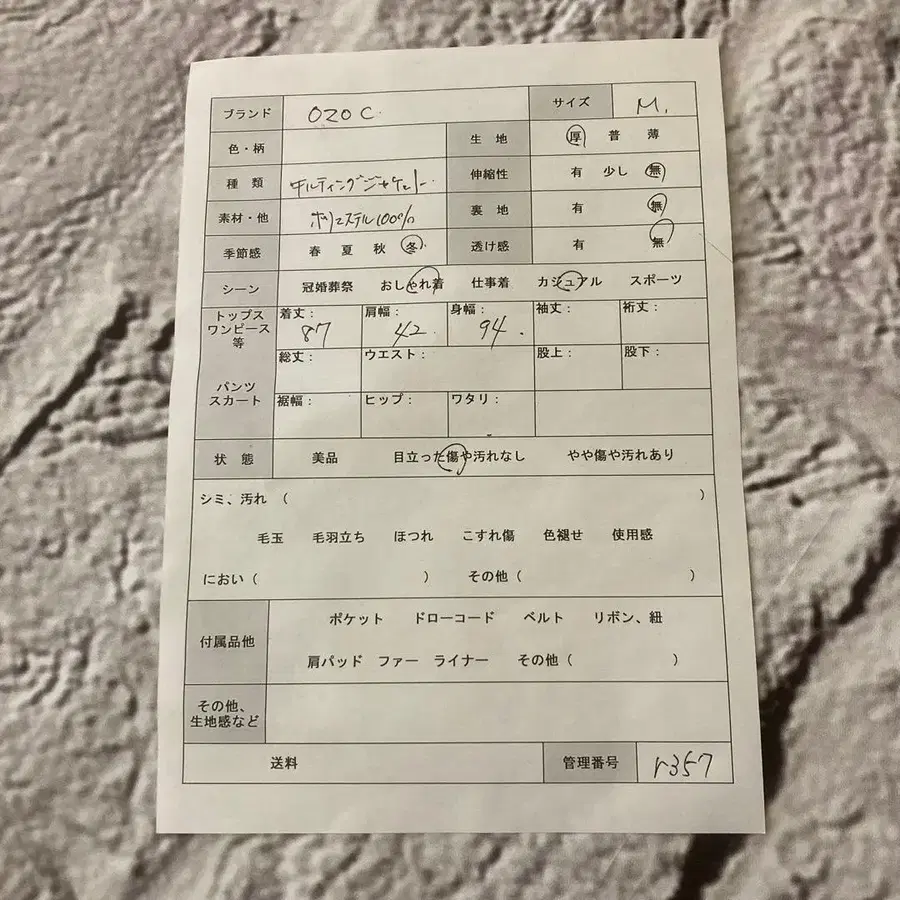 ブランド OZOC サイズ M.
色・柄 生地 厚 普 薄
種類 キルティングジャケット 伸縮性 有 少し 無
素材・他 ポリエステル100% 裏地 有 無
季節感 春 夏 秋 冬 透け感 有 無
シーン 冠婚葬祭 おしゃれ着 仕事着 カジュアル スポーツ
トップス ワンピース 等 着丈: 87 肩幅: 42 身幅: 94. 袖丈: 裄丈:
パンツ スカート 総丈: ウエスト: 股上: 股下:
裾幅: ヒップ: ワタリ:
状態 美品 目立った傷や汚れなし やや傷や汚れあり
シミ、汚れ ( )
毛玉 毛羽立ち ほつれ こすれ傷 色褪せ 使用感
におい ( ) その他 ( )
付属品他 ポケット ドローコード ベルト リボン、紐
肩パッド ファー ライナー その他 ( )
その他、
生地感など
送料 管理番号 r357